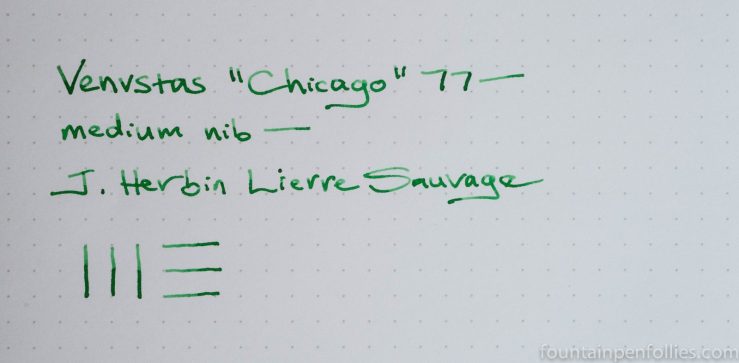 Venvstas "Chicago" 77 —
medium nib —
J. Herbin Lierre Sauvage
fountainpenfollies.com